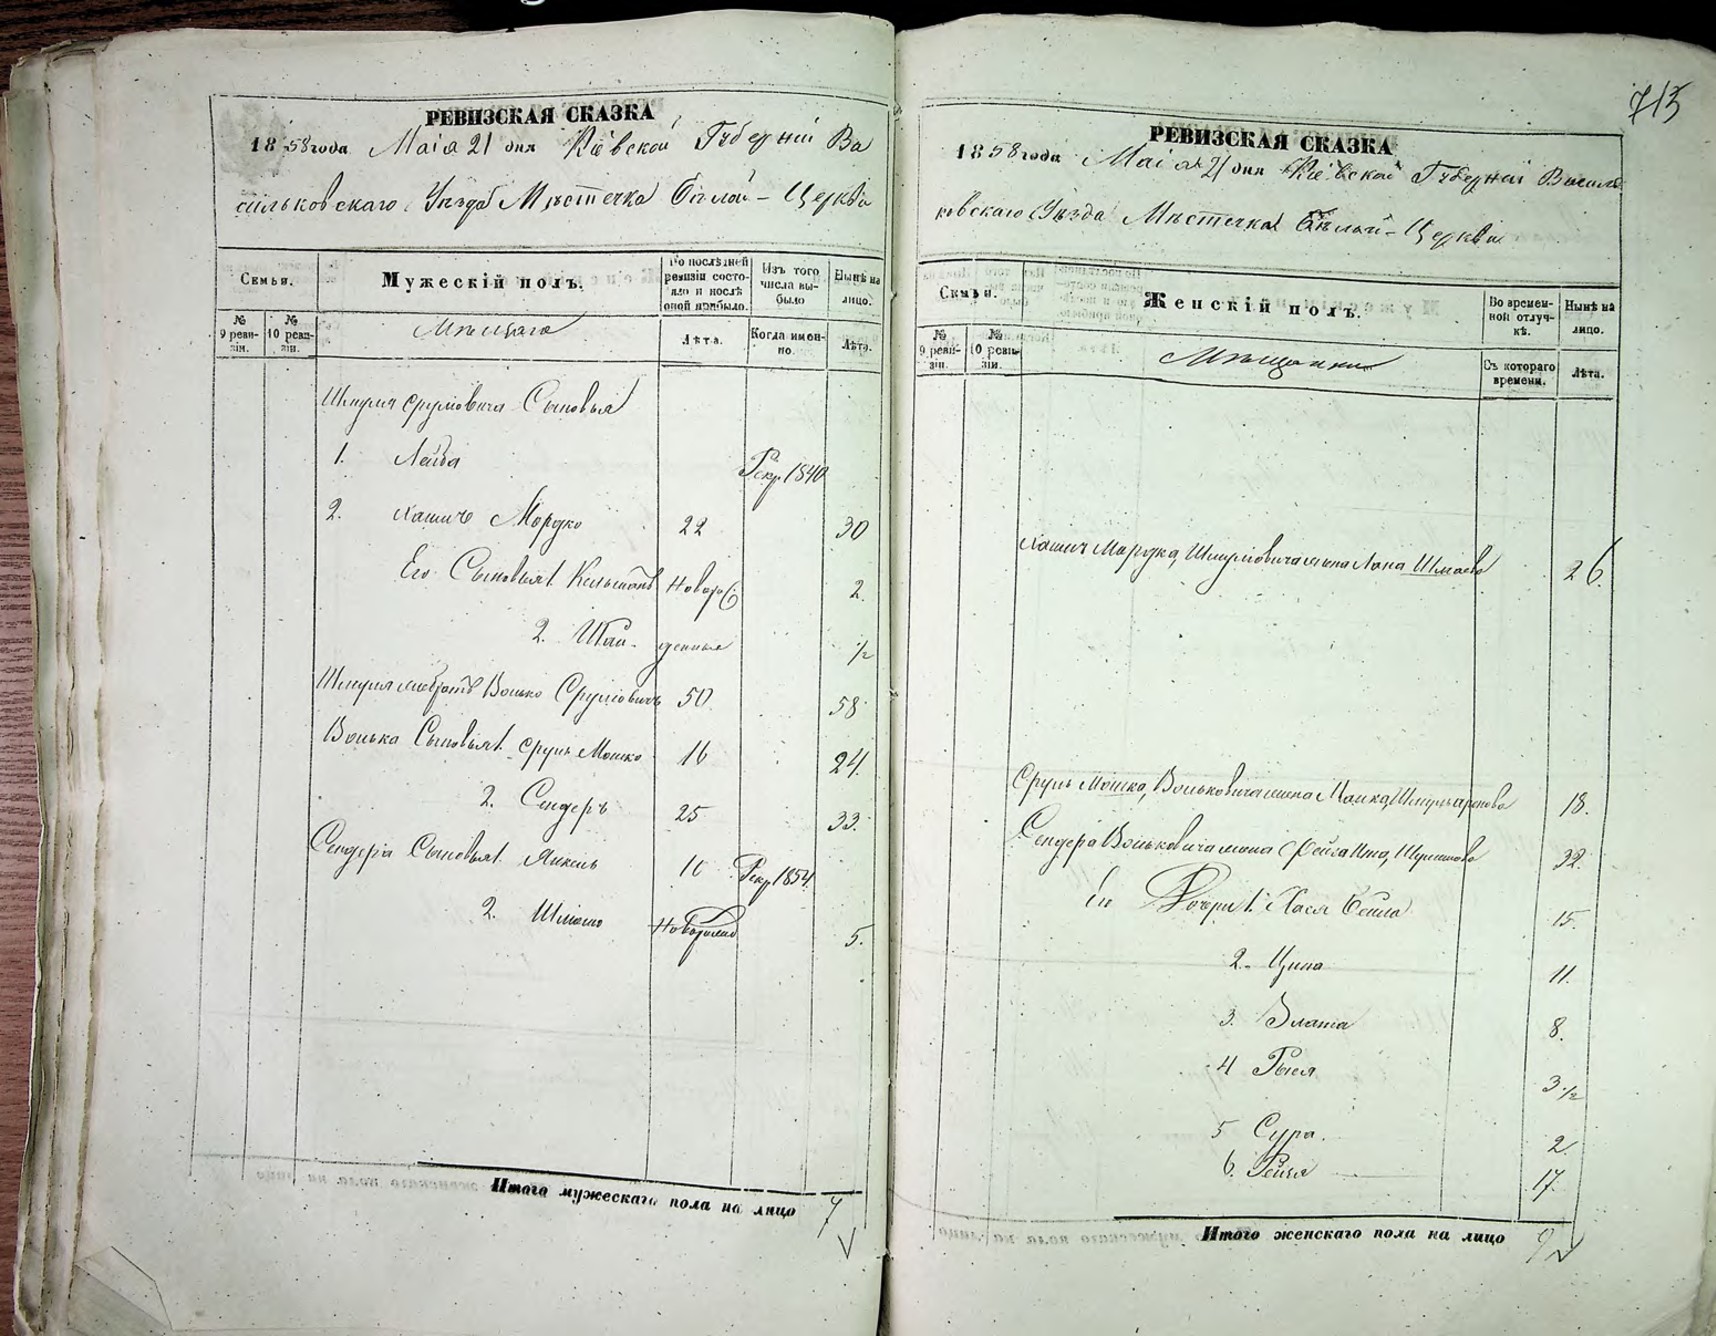 715
РЕВИЗСКАЯ СКАЗКА
1858 года Маія 21 дня Кіевской Губерніи Ва
сильковскаго Уѣзда Мѣстечка Бѣлой-Церкви
Семьи.
Мужескій полъ.
По послѣдней ревизіи состояло и послѣ оной прибыло.
Изъ того числа выбыло
Нынѣ на лицо.
№ 9 ревизіи.
№ 10 ревизіи.
Мѣщане
Лѣта.
Когда именно.
Лѣта.
Шмуля Сруловича Сыновья
1. Лейба Рекр. 1840
2. Хаимъ Мордко 22 30
Его Сыновья 1. новоро 2.
2. Шая жденные 1/2
Шмуля братъ Волько Сруловичъ 50 58
Волька Сыновья 1. Сруль Мошко 16 24.
2. Сендеръ 25 33.
Сендера Сыновья 1. Янкель 16 Рекр 1854
2. Шлiомо Новорожд 5.
Итого мужескаго пола на лицо 7
РЕВИЗСКАЯ СКАЗКА
1858 года Маія 21 дня Кіевской Губерніи Василь
ковскаго Уѣзда Мѣстечка Бѣлой-Церкви
Семьи.
Женскій полъ.
Во временной отлучкѣ.
Нынѣ на лицо.
№ 9 ревизіи.
№ 10 ревизіи.
Мѣщанки
Съ котораго времени.
Лѣта.
Хаимъ Мордка, Шмуловича жена Хана Шмаева 26.
Сруль Мошка, Вольковича жена Малка 18.
Сендера Вольковича жена Фейга 32.
Его Дочери 1. Хася Бейла 15.
2. Ципа 11.
3. Злата 8.
4 Рыся 3 1/2
5 Сура. 2.
6. Рейзя 17.
Итого женскаго пола на лицо 9